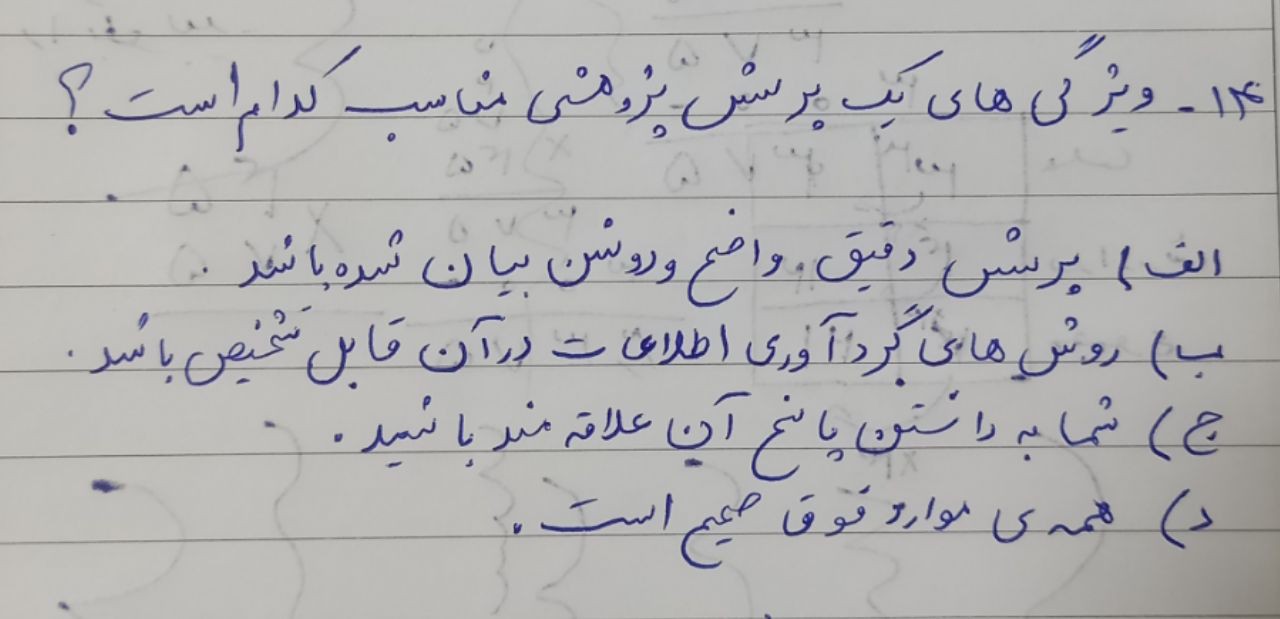 ۱۴- ویژگی های یک پرسش پژوهشی مناسب کدام است؟
الف) پرسش دقیق، واضح و روشن بیان شده باشد.
ب) روش های گردآوری اطلاعات در آن قابل تشخیص باشد.
ج) شما به دانستن پاسخ آن علاقه مند باشید.
د) همه ی موارد فوق صحیح است.